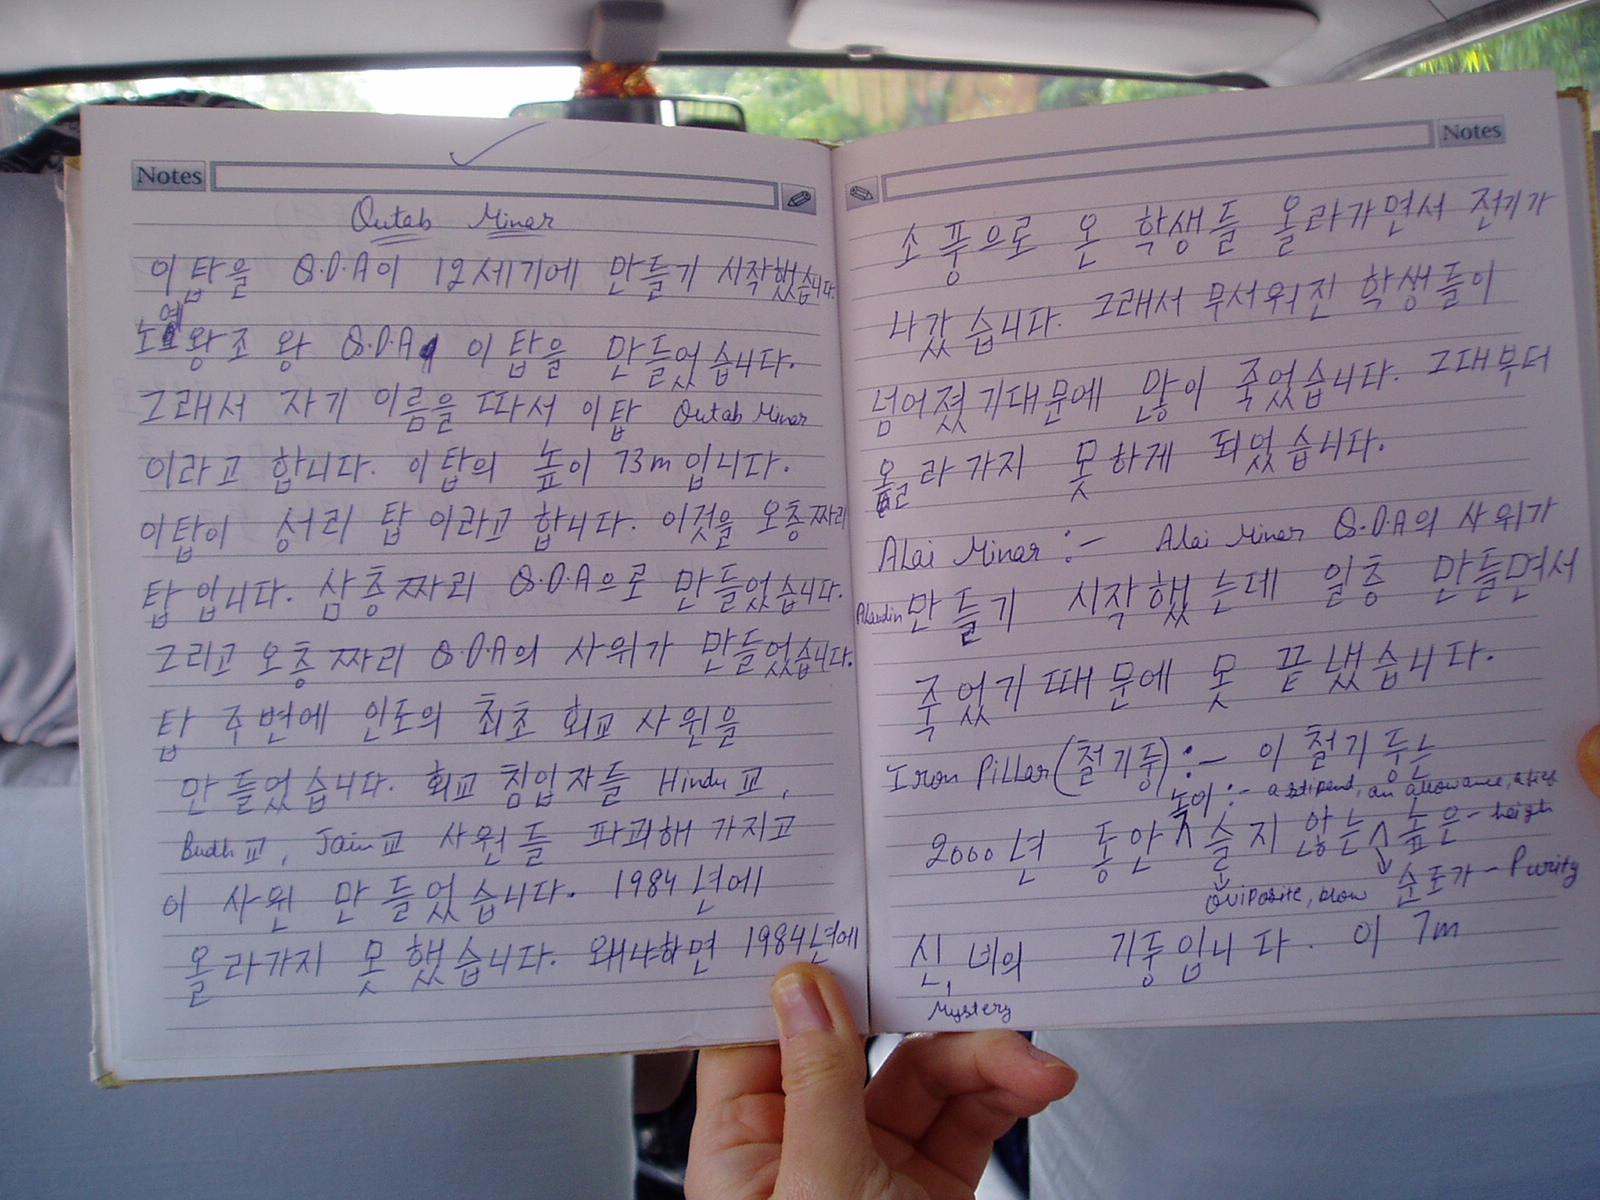 Notes
Qutab Minar
이 탑을 Q.D.A이 12세기에 만들기 시작했습니다.
노예왕조 왕 Q.D.A 이 탑을 만들었습니다.
그래서 자기 이름을 따서 이 탑 Qutab Minar
이라고 합니다. 이 탑의 높이 73m입니다.
이 탑이 승리 탑 이라고 합니다. 이것을 오층짜리
탑 입니다. 삼층짜리 Q.D.A으로 만들었습니다.
그리고 오층짜리 Q.D.A의 사위가 만들었습니다.
탑 주변에 인도의 최초 회교 사원을
만들었습니다. 회교 침입자들 Hindu교,
Budh교, Jain교 사원들 파괴해 가지고
이 사원 만들었습니다. 1984년에
올라가지 못했습니다. 왜냐하면 1984년에
Notes
소풍으로 온 학생들 올라가면서 전기가
나갔습니다. 그래서 무서워진 학생들이
넘어졌기때문에 많이 죽었습니다. 그때부터
올라가지 못하게 되었습니다.
Alai Minar :- Alai Minar Q.D.A의 사위가
Alaudin 만들기 시작했는데 일층 만들면서
죽었기 때문에 못 끝냈습니다.
Iron Pillar (철기둥) :- 이 철기둥는
녹이 :- a stipend, an allowance, a fief
2000년 동안 슬지 않는 높은 - heigh
oviposite, blow 순도가 - Purity
신비의 기둥입니다. 이 7m
Mystery